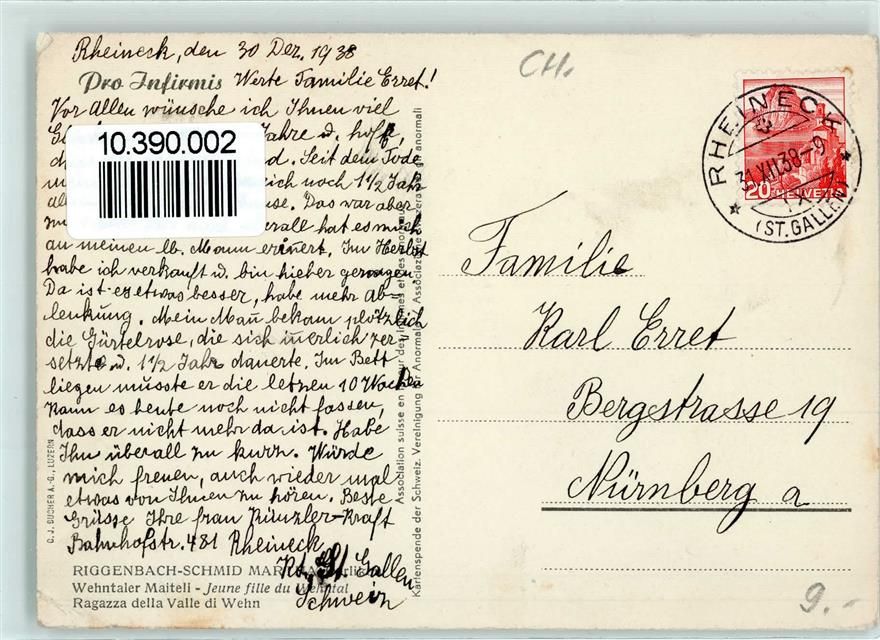 Rheineck, den 30 Dez. 1938
Pro Infirmis Werte Familie Erret!
Vor Allen wünsche ich Ihnen viel
Jahre u. hoffe,
10.390.002
d. Seit dem Tode
noch 1 1/2 Jahr
Das war aber
hat es mich
an meinen lb. Mann erinert. Im Herbst
habe ich verkauft u. bin hieher gezogen.
Da ist es etwas besser, habe mehr Ab-
lenkung. Mein Mañ bekam plötzlich
die Gürtelrose, die sich iñerlich zer
setzte u. 1 1/2 Jahr dauerte. Im Bett
liegen musste er die letzen 10 Wochen
Kann es heute noch nicht fassen,
dass er nicht mehr da ist. Habe
Ihn überall zu kurz. Würde
mich freuen, auch wieder mal
etwas von Ihnen zu hören. Beste
Grüsse Ihre frau Künzler-Kraft
Bahnhofstr. 481 Rheineck
Kt. St Gallen
Schweiz
RIGGENBACH-SCHMID
Wehntaler Maiteli - Jeune fille du Wehntal
Ragazza della Valle di Wehn
C. J. BUCHER A.-G., LUZERN
Association suisse en faveur des
Kartenspende der Schweiz. Vereinigung für Anormale
CH.
RHEINECK
31.XII.38-9
(ST. GALLEN)
20 HELVETIA
Familie
Karl Erret
Bergstrasse 19
Nürnberg a
9.-